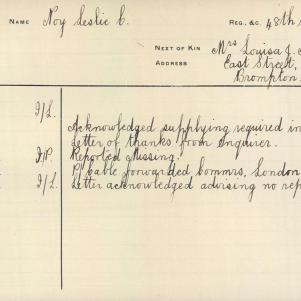 NAME Noy Leslie C. REG. &C. 48th
NEXT OF KIN Mrs Louisa J.
ADDRESS East Street,
Brompton
I/L. Acknowledged supplying required in
Letter of thanks from Enquirer.
I/P. Reported Missing.
P/ cable forwarded Commrs. London
I/L. Letter acknowledged advising no rep